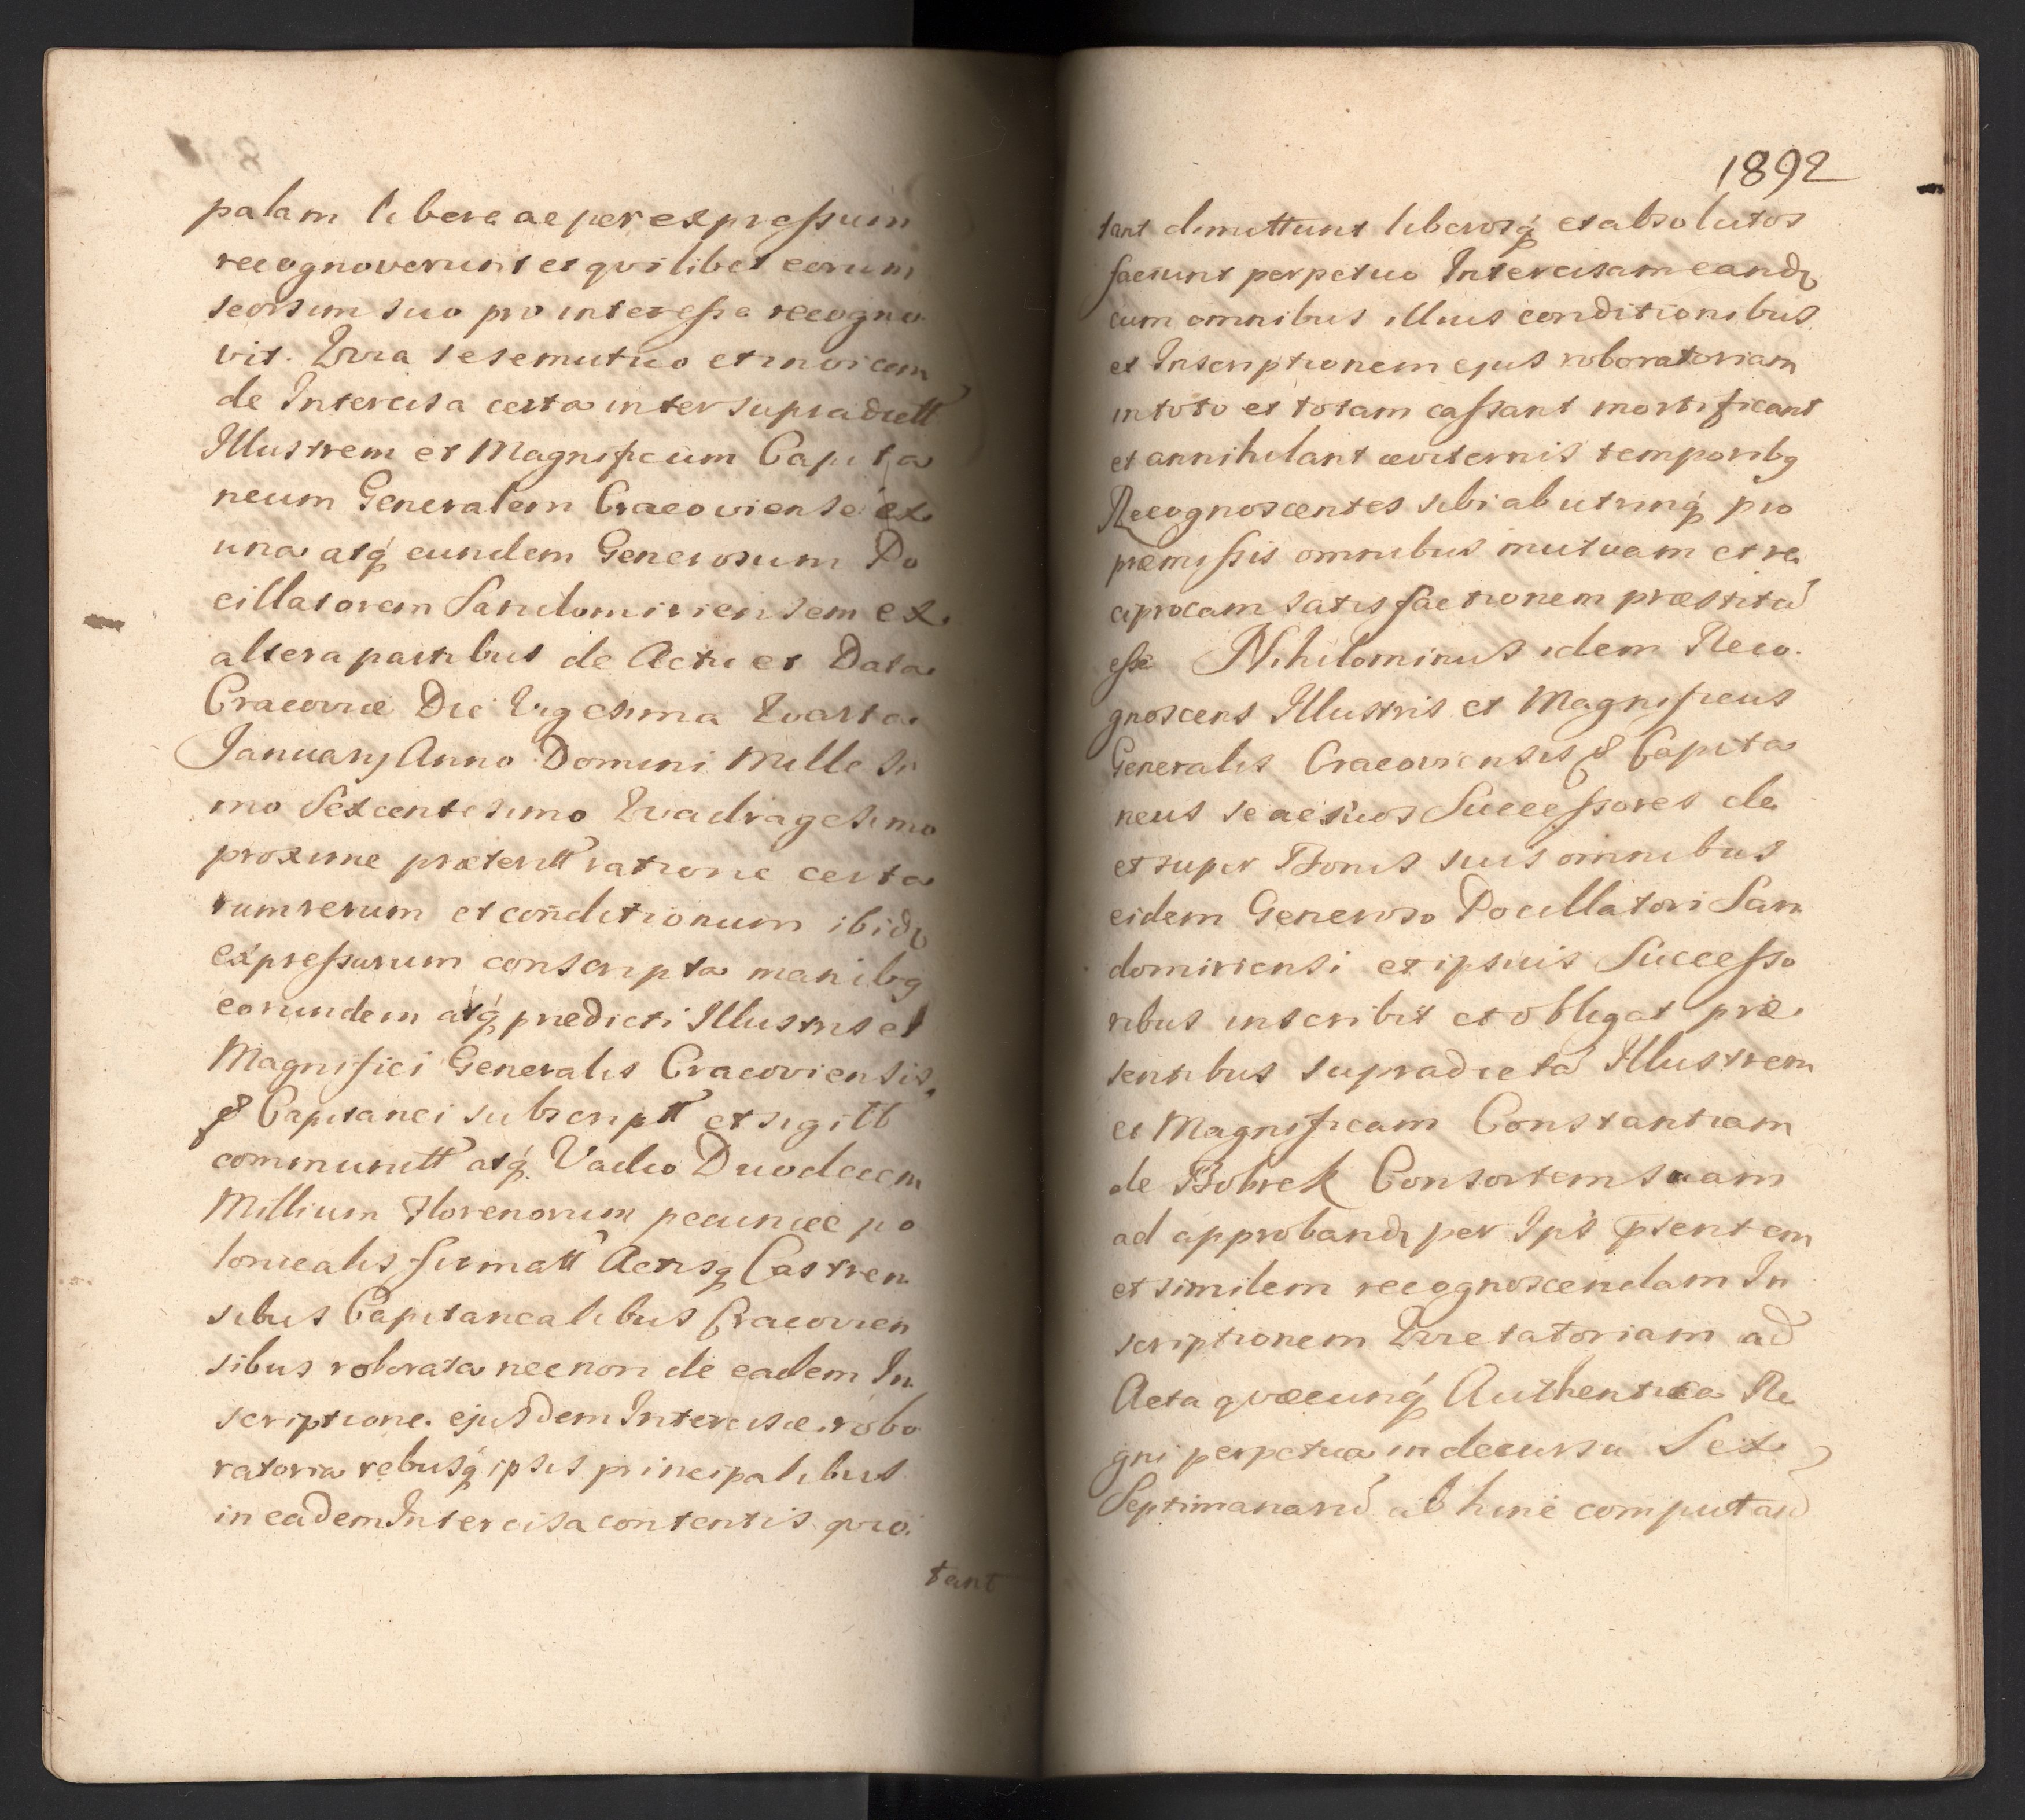 palam libere ac per expressum
recognoverunt et qvilibet eorum
seorsim suo pro interesse recogno
vit. Qvia sese mutuo et invicem
de Intercisa certa inter supradictt
Illustrem et Magnificum Capita
neum Generalem Cracoviensé ex
una atq́ eundem Generosum Po
cillatorem Sandomiriensem ex
altera partibus de Actu et Data
Cracoviæ Die Vigesima Qvarta
January Anno Domini Millesi
mo Sexcentesimo Qvadragesimo
proxime præteritt ratione certa
rum rerum et conditionum ibidꝫ
expressarum conscripta manibq
eorundem atq́ prædicti Illustris et
Magnifici Generalis Cracoviensis
& Capitanei subscriptt et sigitt
communitt atq́ Vadio Duodecem
Millium Florenorum pecuniæ po
lonicalis firmatt Actisq Castren
sibus Capitanealibus Cracovien
sibus roborata necnon de eadem In
scriptione ejusdem Intercisæ robo
ratoria rebusq́ ipsis principalibus
in eadem Intercisa contentis qvie
tant
1892
tant dimittunt liberosq́ et absolutos
faciunt perpetuo Intercisam eandꝫ
cum omnibus illius conditionibus
et Inscriptionem ejus roboratoriam
in toto et totam cassant mortificant
et annihilant æviternis temporibq
Recognoscentes sibi ab utrinq́ pro
præmissis omnibus mutuam et re
ciprocam satisfactionem præstitā
esse Nihilominus idem Reco
gnoscens Illustris et Magnificus
Generalis Cracoviensis & Capita
neus se ac suos Successores de
et super Bonis suis omnibus
eidem Generoso Pocillatori San
domiriensi et ipsius Successo
ribus inscribit et obligat præ
sentibus supradictā Illustrem
et Magnificam Constantiam
de Bobrek Consortem suam
ad approbandꝫ per Ips p̄sentem
et similem recognoscendam In
scriptionem Qvietatoriam ad
Acta qvæcunq́ Authentica Re
gni perpetua in decursu Sex
Septimanarū ab hinc computand